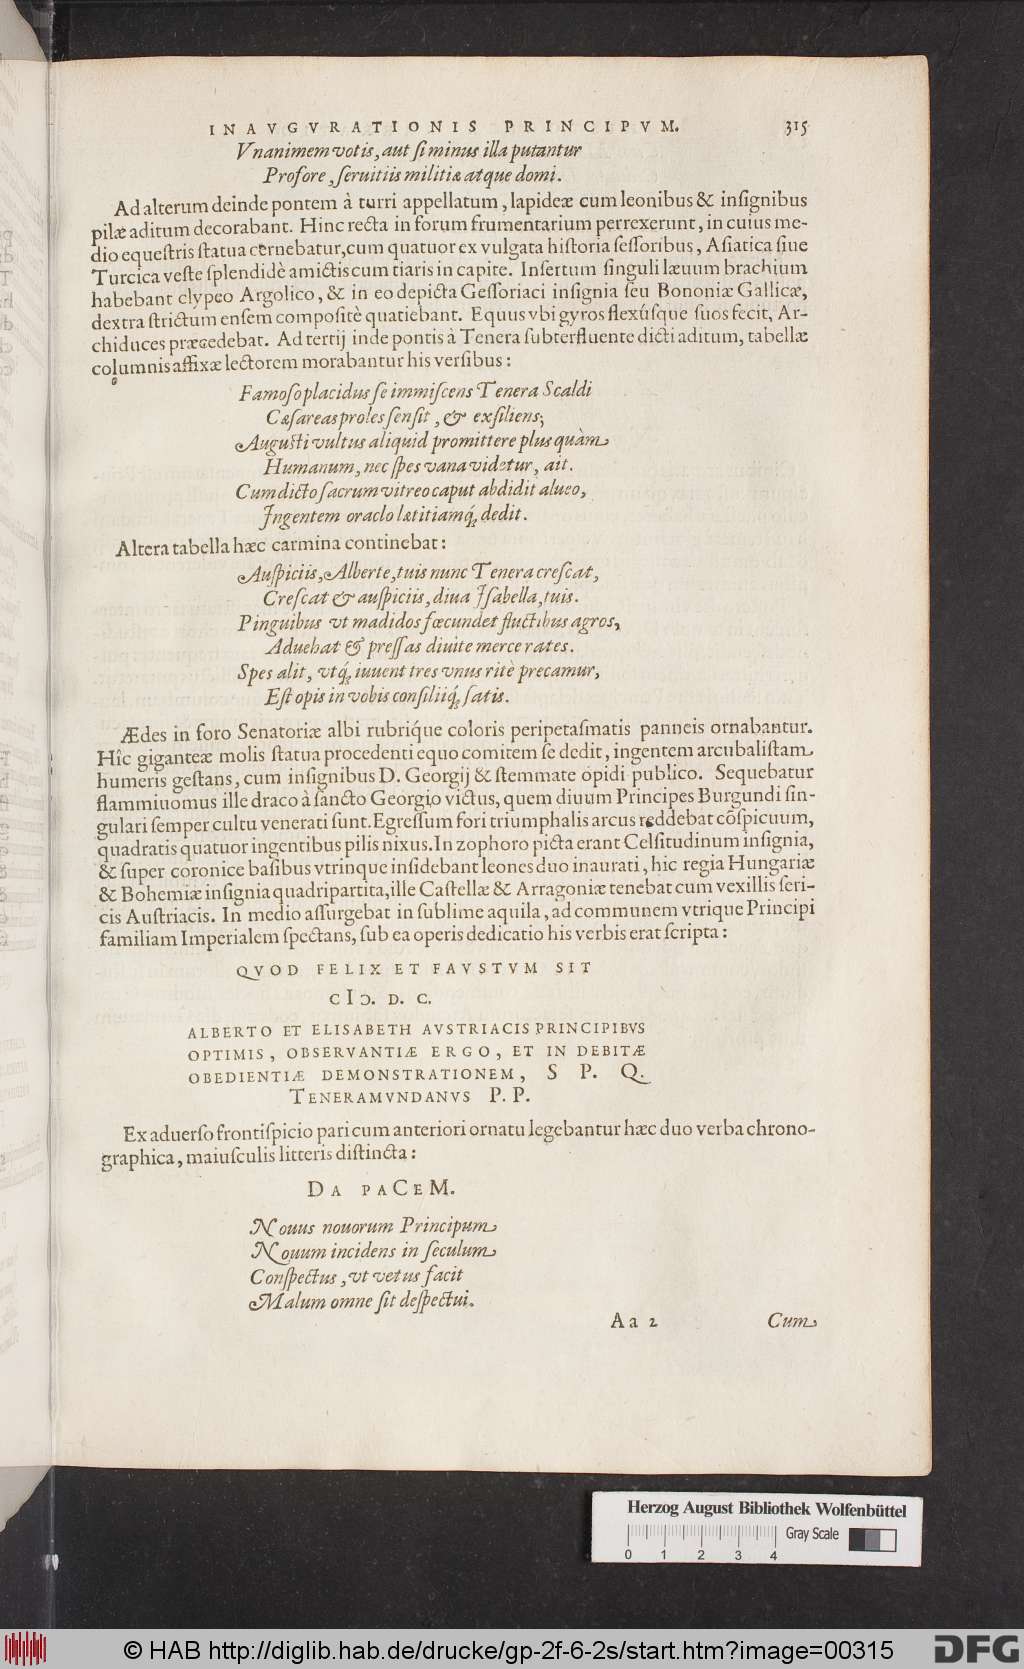 INAVGVRATIONIS PRINCIPVM. 315
Vnanimem votis, aut si minus illa putantur
Profore, seruitiis militiæ atque domi.
Ad alterum deinde pontem à turri appellatum, lapideæ cum leonibus & insignibus
pilæ aditum decorabant. Hinc recta in forum frumentarium perrexerunt, in cuius me-
dio equestris statua cernebatur, cum quatuor ex vulgata historia sessoribus, Asiatica siue
Turcica veste splendidè amictis cum tiaris in capite. Insertum singuli læuum brachium
habebant clypeo Argolico, & in eo depicta Gessoriaci insignia seu Bononiæ Gallicæ,
dextra strictum ensem compositè quatiebant. Equus vbi gyros flexúsque suos fecit, Ar-
chiduces præcedebat. Ad tertij inde pontis à Tenera subterfluente dicti aditum, tabellæ
columnis affixæ lectorem morabantur his versibus:
Famoso placidus se immiscens Tenera Scaldi
Cæsareas proles sensit, & exsiliens;
Augusti vultus aliquid promittere plus quàm
Humanum, nec spes vana videtur, ait.
Cum dicto sacrum vitreo caput abdidit alueo,
Ingentem oraclo lætitiamq́; dedit.
Altera tabella hæc carmina continebat:
Auspiciis, Alberte, tuis nunc Tenera crescat,
Crescat & auspiciis, diua Isabella, tuis.
Pinguibus vt madidos fœcundet fluctibus agros,
Aduehat & pressas diuite merce rates.
Spes alit, vtq́; iuuent tres vnus ritè precamur,
Est opis in vobis consiliiq́; satis.
Ædes in foro Senatoriæ albi rubriq́ue coloris peripetasmatis panneis ornabantur.
Hîc giganteæ molis statua procedenti equo comitem se dedit, ingentem arcubalistam
humeris gestans, cum insignibus D. Georgij & stemmate opidi publico. Sequebatur
flammiuomus ille draco à sancto Georgio victus, quem diuum Principes Burgundi sin-
gulari semper cultu venerati sunt. Egressum fori triumphalis arcus reddebat cōspicuum,
quadratis quatuor ingentibus pilis nixus. In zophoro picta erant Celsitudinum insignia,
& super coronice basibus vtrinque insidebant leones duo inaurati, hic regia Hungariæ
& Bohemiæ insignia quadripartita, ille Castellæ & Arragoniæ tenebat cum vexillis seri-
cis Austriacis. In medio assurgebat in sublime aquila, ad communem vtrique Principi
familiam Imperialem spectans, sub ea operis dedicatio his verbis erat scripta:
QVOD FELIX ET FAVSTVM SIT
CIↃ. D. C.
ALBERTO ET ELISABETH AVSTRIACIS PRINCIPIBVS
OPTIMIS, OBSERVANTIÆ ERGO, ET IN DEBITÆ
OBEDIENTIÆ DEMONSTRATIONEM, S P. Q.
TENERAMVNDANVS P. P.
Ex aduerso frontispicio pari cum anteriori ornatu legebantur hæc duo verba chrono-
graphica, maiusculis litteris distincta:
DA PACEM.
Nouus nouorum Principum
Nouum incidens in seculum
Conspectus, vt vetus facit
Malum omne sit despectui.
Aa 2 Cum
Herzog August Bibliothek Wolfenbüttel
Gray Scale
0 1 2 3 4
© HAB http://diglib.hab.de/drucke/gp-2f-6-2s/start.htm?image=00315 DFG